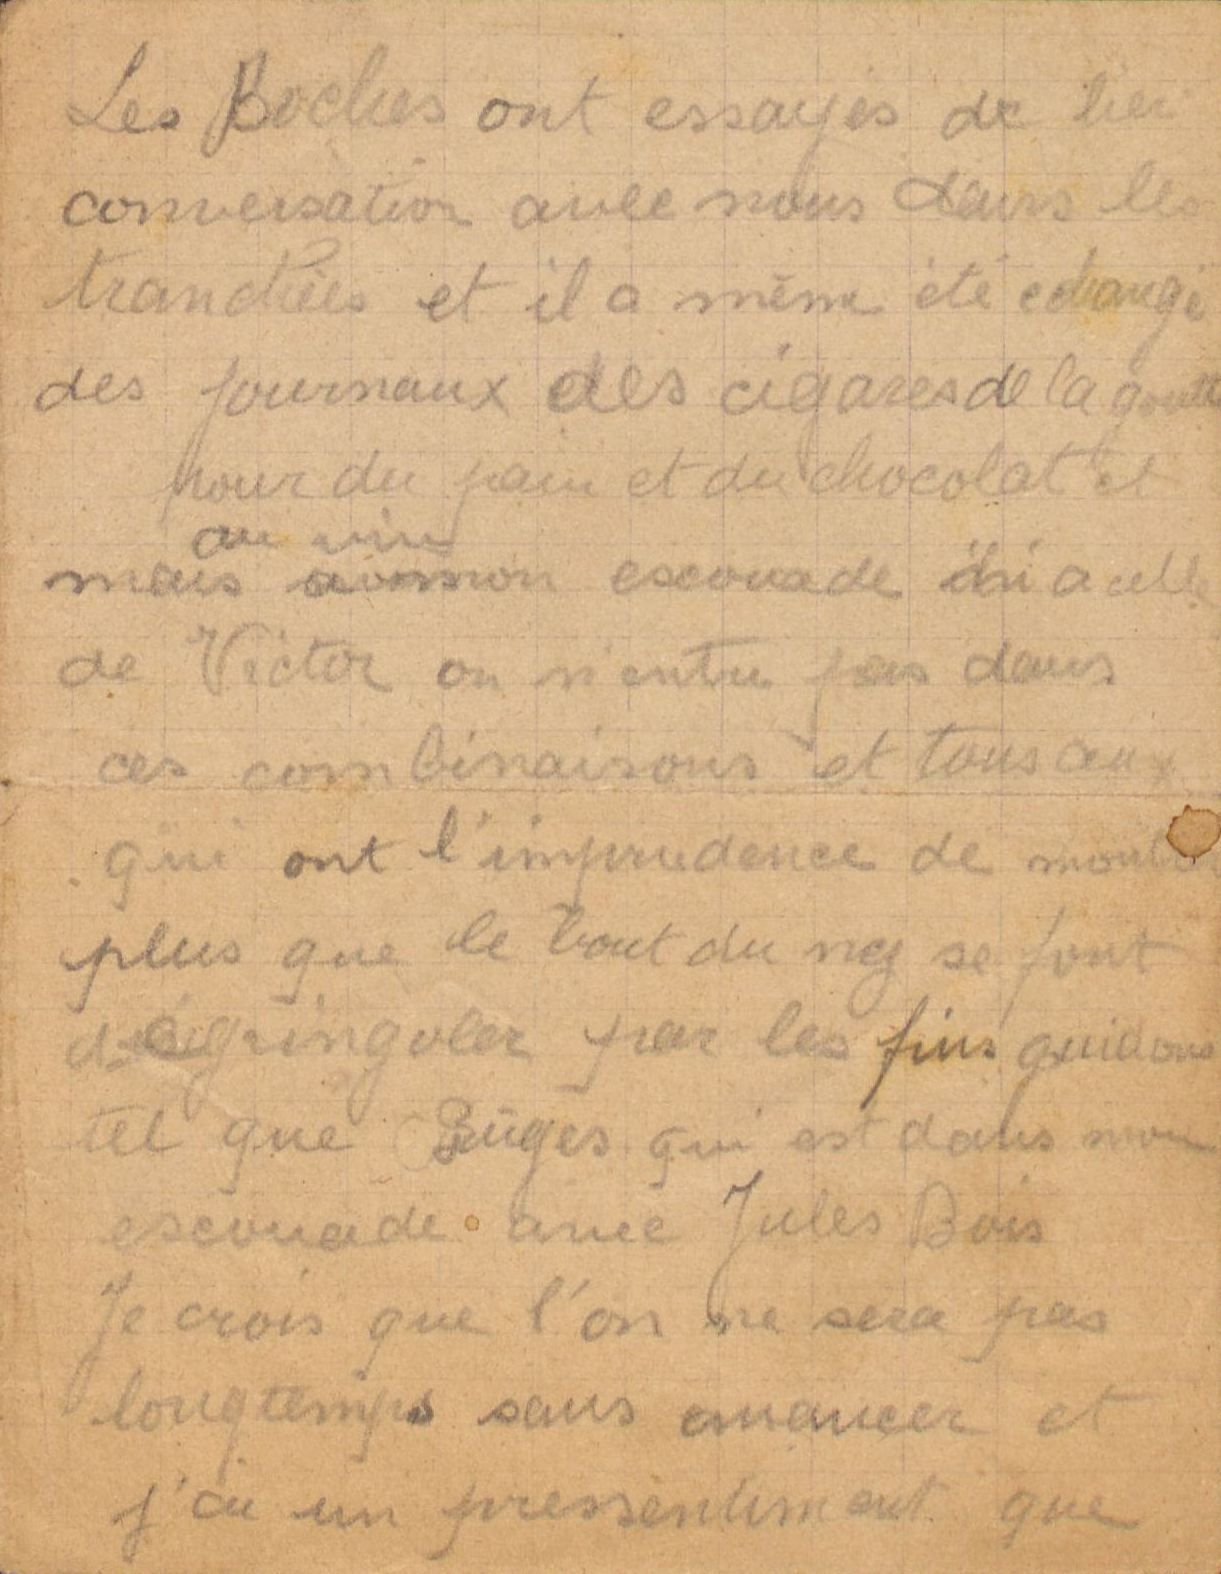 Les Boches ont essayés de lier
conversation avec nous dans les
tranchées et il a même été echangé
des journaux des cigares de la goutte
pour du pain et du chocolat et
au vin
mais a mon escouade ni a celle
de Victor on n'entre pas dans
ces combinaisons et tous ceux
qui ont l'imprudence de montrer
plus que le bout du nez se font
dégringoler par les fins guidons
tel que Buges qui est dans mon
escouade avec Jules Bois
Je crois que l'on ne sera pas
longtemps sans avancer et
j'ai un pressentiment que